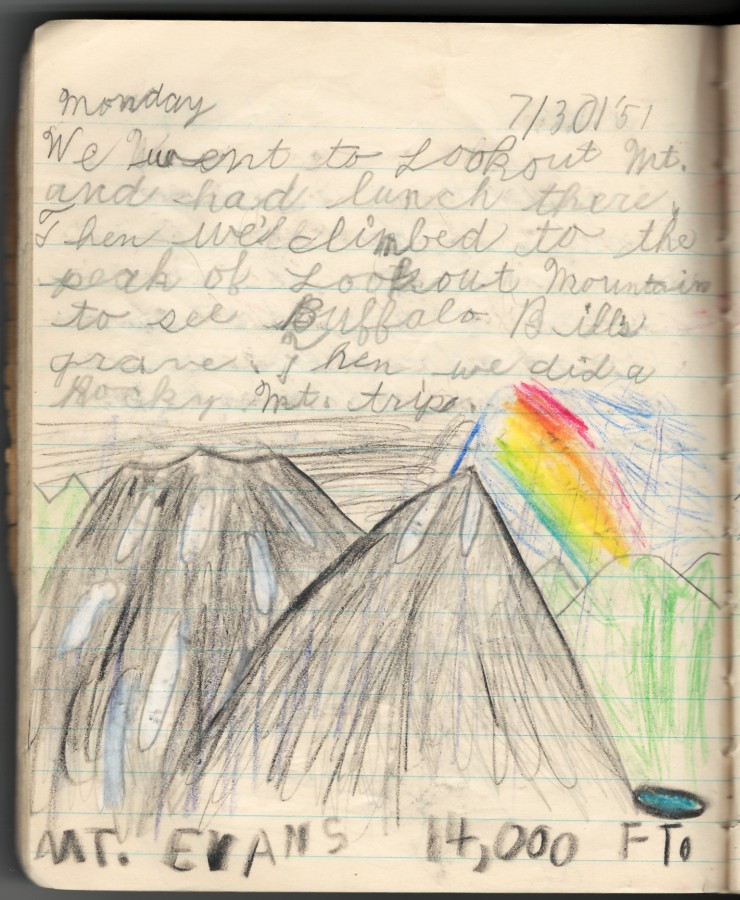 Monday 7/30/'51
We went to Lookout Mt.
and had lunch there.
Then we climbed to the
peak of Lookout Mountain
to see Buffalo Bills
grave. Then we did a
Rocky Mt. trip.
MT. EVANS 14,000 FT.